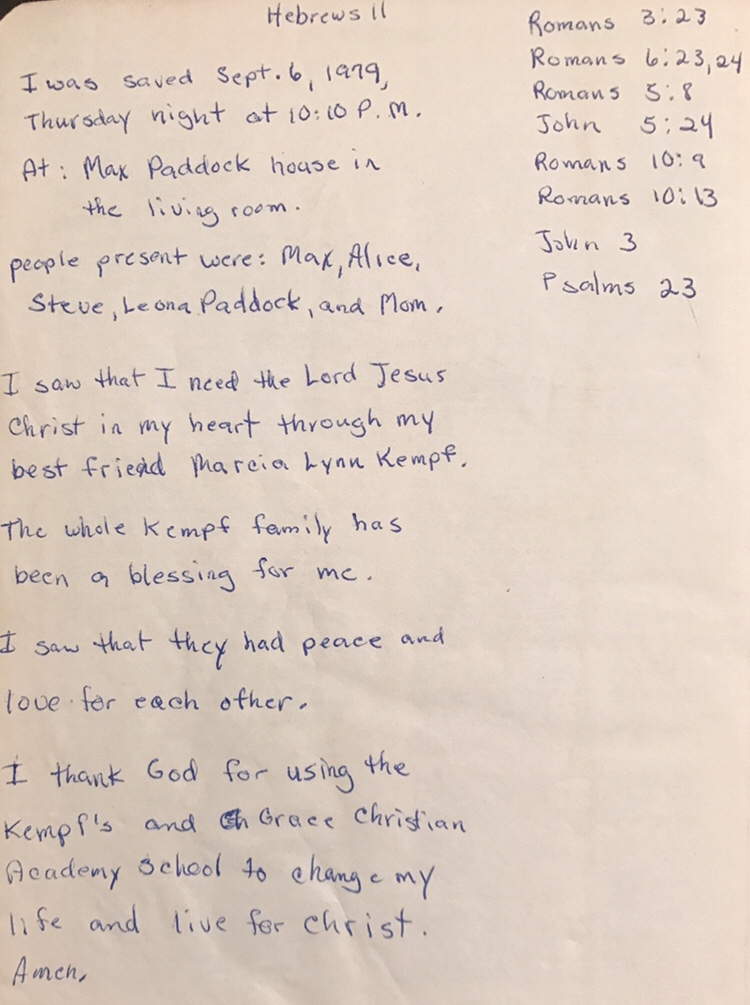 Hebrews 11
I was saved Sept. 6, 1979,
Thursday night at 10:10 P.M.
At: Max Paddock house in
the living room.
people present were: Max, Alice,
Steve, Leona Paddock, and Mom.
I saw that I need the Lord Jesus
Christ in my heart through my
best friend Marcia Lynn Kempf.
The whole Kempf family has
been a blessing for me.
I saw that they had peace and
love for each other.
I thank God for using the
Kempf's and Grace Christian
Academy School to change my
life and live for Christ.
Amen,
Romans 3:23
Romans 6:23,24
Romans 5:8
John 5:24
Romans 10:9
Romans 10:13
John 3
Psalms 23